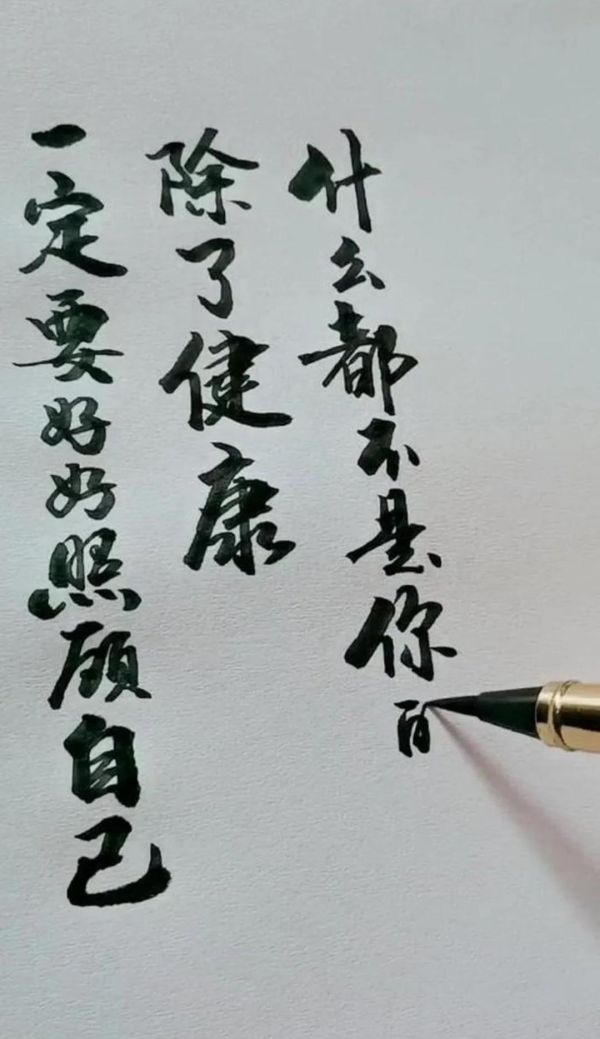 一定要好好照顾自己
除了健康
什么都不是你